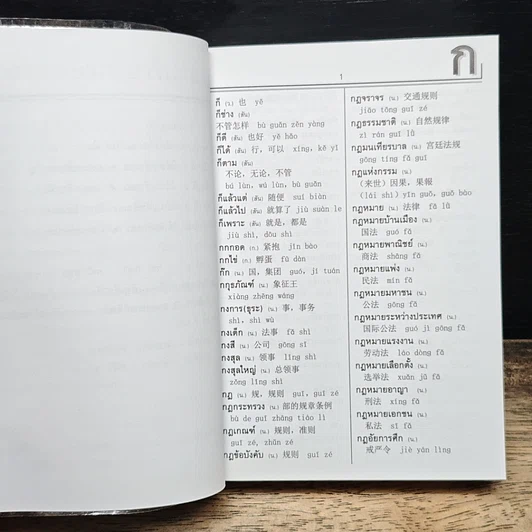 ก
1
ก็ (ว) 也 yě
ก็ช่าง (สัน)
不管怎样 bù guǎn zěn yàng
ก็ดี (สัน) 也好 yě hǎo
ก็ได้ (สัน) 行, 可以 xíng, kě yǐ
ก็ตาม (สัน)
不论, 无论, 不管
bú lùn, wú lùn, bù guǎn
ก็แล้วแต่ (สัน) 随便 suí biàn
ก็แล้วไป (สัน) 就算了 jiù suàn le
ก็เพราะ (สัน) 就是, 都是
jiù shì, dōu shì
กกกอด (ก.) 紧抱 jǐn bào
กกไข่ (ก.) 孵蛋 fū dàn
ก๊ก (น.) 国, 集团 guó, jí tuán
กกุธภัณฑ์ (น.) 象征王
xiàng zhēng wáng
กงการ(ธุระ) (น.) 事, 事务
shì, shì wù
กงเต๊ก (น.) 法事 fǎ shì
กงสี (น.) 公司 gōng sī
กงสุล (น.) 领事 lǐng shì
กงสุลใหญ่ (น.) 总领事
zǒng lǐng shì
กฎ (น.) 规, 规则 guī, guī zé
กฎกระทรวง (น.) 部的规章条例
bù de guī zhāng tiáo lì
กฎเกณฑ์ (น.) 规则, 准则
guī zé, zhǔn zé
กฎข้อบังคับ (น.) 规则 guī zé
กฎจราจร (น.) 交通规则
jiāo tōng guī zé
กฎธรรมชาติ (น.) 自然规律
zì rán guī lǜ
กฎมนเทียรบาล (น.) 宫廷法规
gōng tíng fǎ guī
กฎแห่งกรรม (น.)
(来世) 因果, 果報
(lái shì) yīn guǒ, guǒ bào
กฎหมาย (น.) 法律 fǎ lǜ
กฎหมายบ้านเมือง (น.)
国法 guó fǎ
กฎหมายพาณิชย์ (น.)
商法 shāng fǎ
กฎหมายแพ่ง (น.)
民法 mín fǎ
กฎหมายมหาชน (น.)
公法 gōng fǎ
กฎหมายระหว่างประเทศ (น.)
国际公法 guó jì gōng fǎ
กฎหมายแรงงาน (น.)
劳动法 láo dòng fǎ
กฎหมายเลือกตั้ง (น.)
选举法 xuǎn jǔ fǎ
กฎหมายอาญา (น.)
刑法 xíng fǎ
กฎหมายเอกชน (น.)
私法 sī fǎ
กฎอัยการศึก (น.)
戒严令 jiè yán lìng